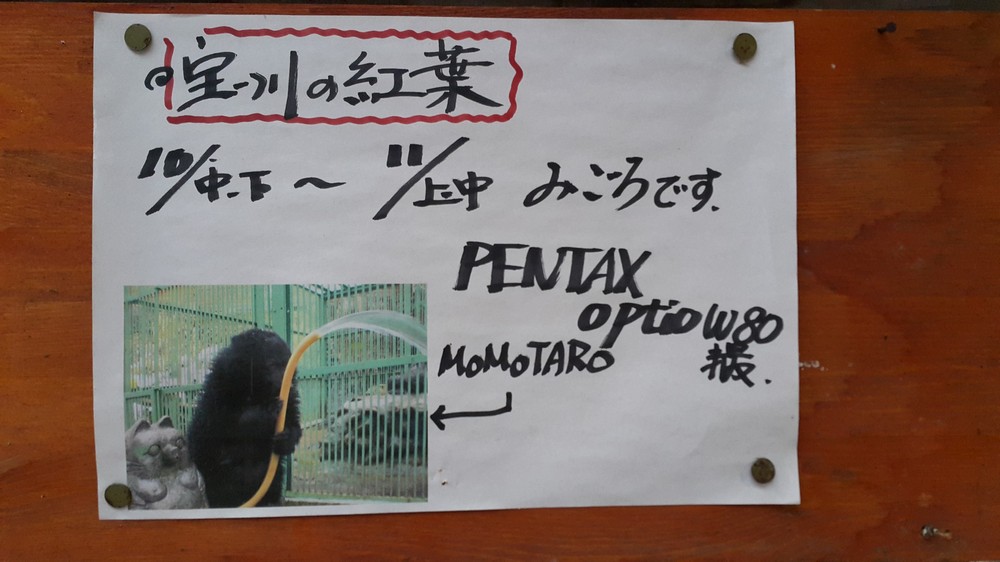 宝川の紅葉
10/中.下 〜 11/上.中 みごろです.
PENTAX
optio W80
撮.
MOMOTARO